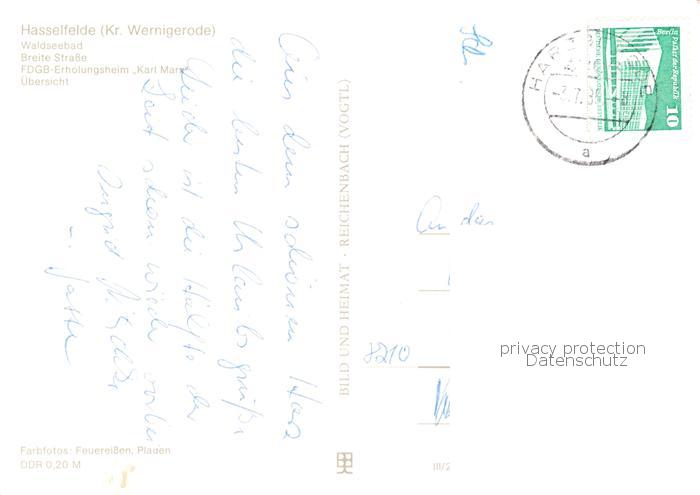 Hasselfelde (Kr. Wernigerode)
Waldseebad
Breite Straße
FDGB-Erholungsheim „Karl Marx
Übersicht
Aus dem schönen Harz
die besten Urlaubsgrüße
Leider ist die Hälfte der
Zeit schon wieder vorbei
Ingrid
u. Gatte
BILD UND HEIMAT · REICHENBACH (VOGTL)
An das
8210
Berlin Palast der Republik
10
a
privacy protection
Datenschutz
Farbfotos: Feuereißen, Plauen
DDR 0,20 M
III/2